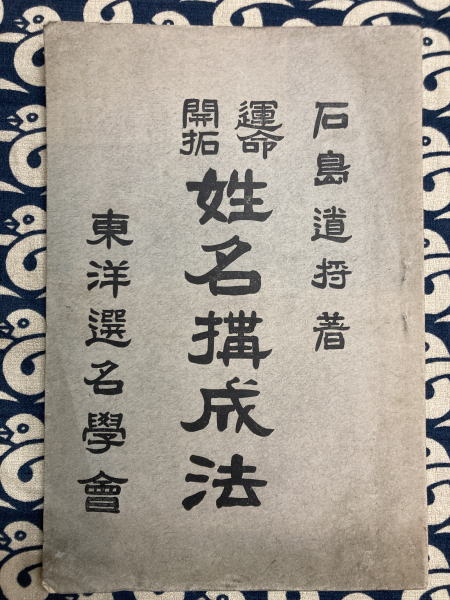 石島道捋著
運命
開拓
姓名構成法
東洋選名學會